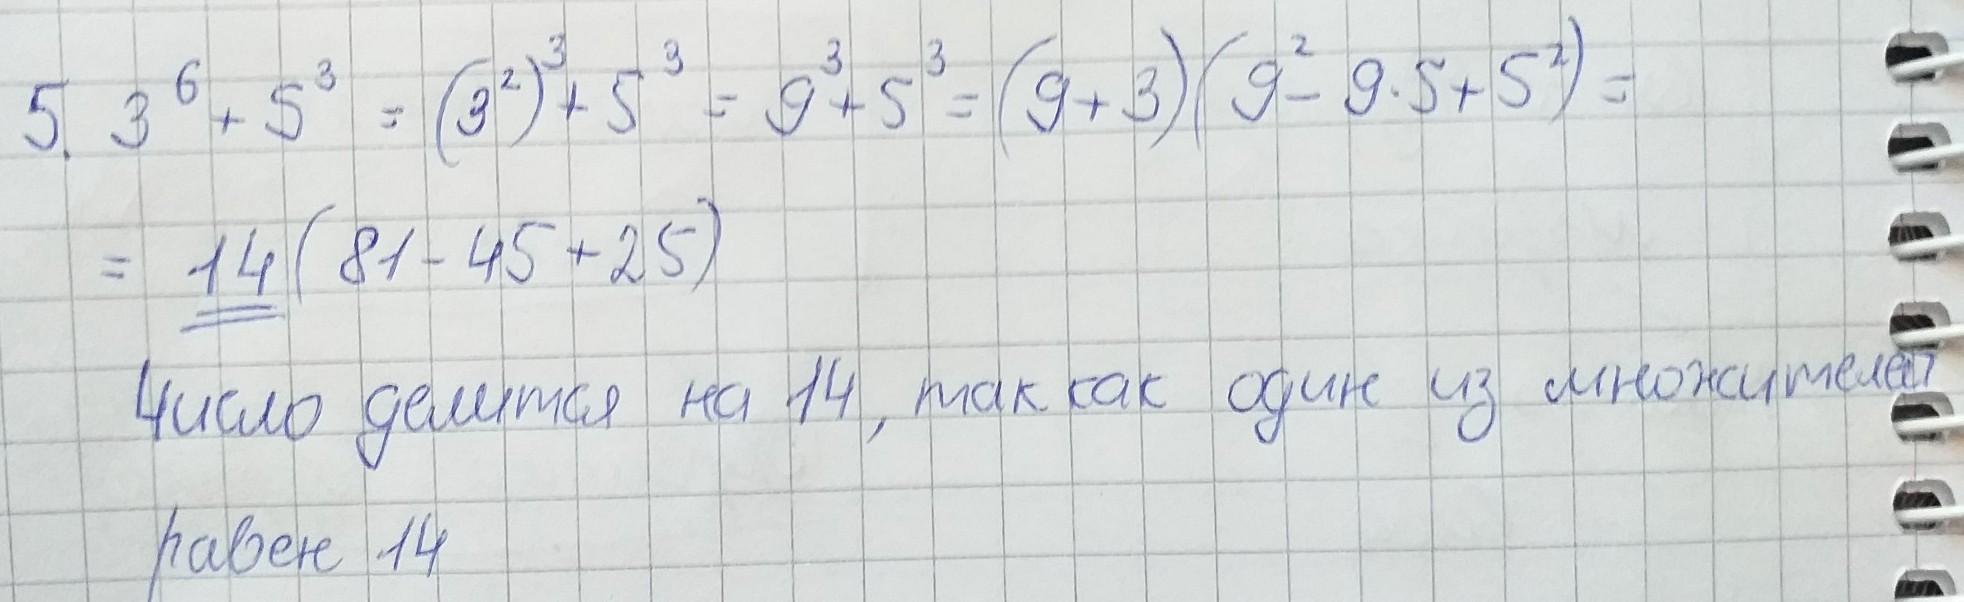 5. 3⁶ + 5³ = (3²)³ + 5³ = 9³ + 5³ = (9 + 3)(9² - 9 · 5 + 5²) =
= 14(81 - 45 + 25)
Число делится на 14, так как один из множителей
равен 14